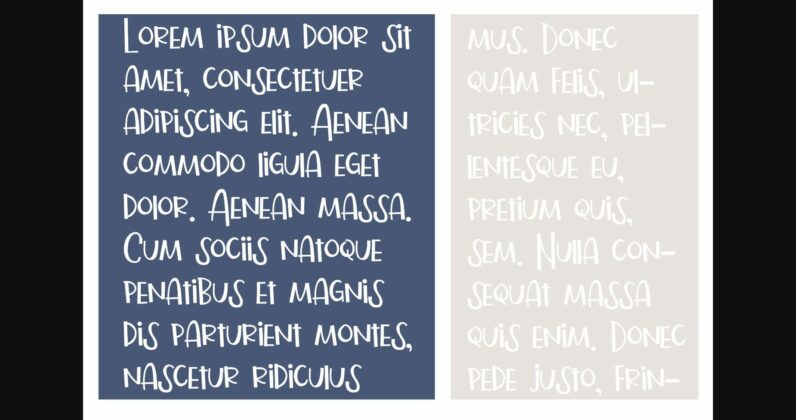 Lorem ipsum dolor sit
amet, consectetuer
adipiscing elit. Aenean
commodo ligula eget
dolor. Aenean massa.
Cum sociis natoque
penatibus et magnis
dis parturient montes,
nascetur ridiculus
mus. Donec
quam felis, ul-
tricies nec, pel-
lentesque eu,
pretium quis,
sem. Nulla con-
sequat massa
quis enim. Donec
pede justo, frin-